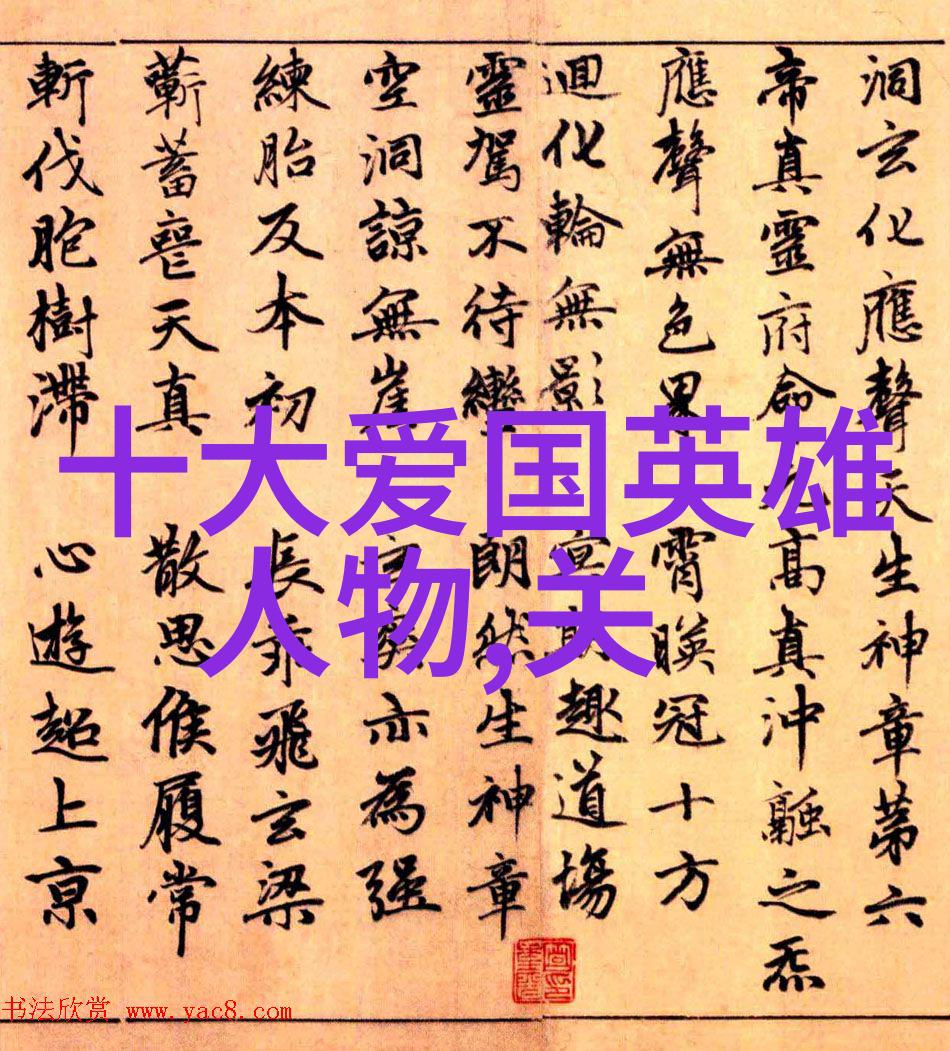 洞玄化應聲天生神章第六
帝真靈府命元高真沖融之炁
應聲無色界 霄映冠十方
迴化輪無影 冥期趣道場
靈駕不待轡 朗然生神章
空洞諒無崖 玄亦為强
練胎反本初 長乖飛玄梁
蘄蓄喪天真 散思候履常
斬伐胞樹滯 心遊超上京
十大爱国英雄
人物,关
书法欣赏 www.yac8.com